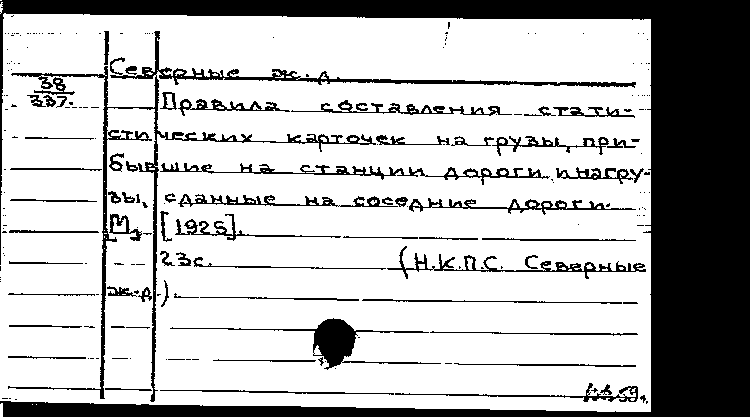 Северные ж.д.
38
337.
Правила составления стати-
стических карточек на грузы, при-
бывшие на станции дороги и на гру-
зы, сданные на соседние дороги.
[М., [1925].
23с. (Н.К.П.С. Северные
ж.д.).